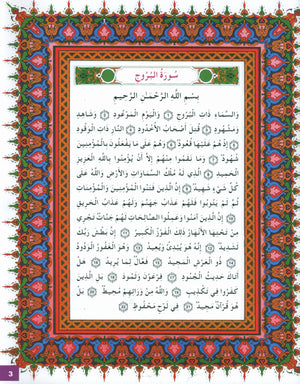 سُورَةُ البُرُوجِ
بِسْمِ اللَّهِ الرَّحْمَٰنِ الرَّحِيمِ
وَالسَّمَاءِ ذَاتِ الْبُرُوجِ ﴿١﴾ وَالْيَوْمِ الْمَوْعُودِ ﴿٢﴾ وَشَاهِدٍ
وَمَشْهُودٍ ﴿٣﴾ قُتِلَ أَصْحَابُ الْأُخْدُودِ ﴿٤﴾ النَّارِ ذَاتِ الْوَقُودِ
﴿٥﴾ إِذْ هُمْ عَلَيْهَا قُعُودٌ ﴿٦﴾ وَهُمْ عَلَىٰ مَا يَفْعَلُونَ بِالْمُؤْمِنِينَ
شُهُودٌ ﴿٧﴾ وَمَا نَقَمُوا مِنْهُمْ إِلَّا أَنْ يُؤْمِنُوا بِاللَّهِ الْعَزِيزِ
الْحَمِيدِ ﴿٨﴾ الَّذِي لَهُ مُلْكُ السَّمَاوَاتِ وَالْأَرْضِ وَاللَّهُ عَلَىٰ
كُلِّ شَيْءٍ شَهِيدٌ ﴿٩﴾ إِنَّ الَّذِينَ فَتَنُوا الْمُؤْمِنِينَ وَالْمُؤْمِنَاتِ
ثُمَّ لَمْ يَتُوبُوا فَلَهُمْ عَذَابُ جَهَنَّمَ وَلَهُمْ عَذَابُ الْحَرِيقِ ﴿١٠﴾
إِنَّ الَّذِينَ آمَنُوا وَعَمِلُوا الصَّالِحَاتِ لَهُمْ جَنَّاتٌ تَجْرِي
مِنْ تَحْتِهَا الْأَنْهَارُ ذَٰلِكَ الْفَوْزُ الْكَبِيرُ ﴿١١﴾ إِنَّ بَطْشَ رَبِّكَ
لَشَدِيدٌ ﴿١٢﴾ إِنَّهُ هُوَ يُبْدِئُ وَيُعِيدُ ﴿١٣﴾ وَهُوَ الْغَفُورُ الْوَدُودُ
﴿١٤﴾ ذُو الْعَرْشِ الْمَجِيدُ ﴿١٥﴾ فَعَّالٌ لِمَا يُرِيدُ ﴿١٦﴾ هَلْ
أَتَاكَ حَدِيثُ الْجُنُودِ ﴿١٧﴾ فِرْعَوْنَ وَثَمُودَ ﴿١٨﴾ بَلِ الَّذِينَ
كَفَرُوا فِي تَكْذِيبٍ ﴿١٩﴾ وَاللَّهُ مِنْ وَرَائِهِمْ مُحِيطٌ ﴿٢٠﴾ بَلْ
هُوَ قُرْآنٌ مَجِيدٌ ﴿٢١﴾ فِي لَوْحٍ مَحْفُوظٍ ﴿٢٢﴾
3